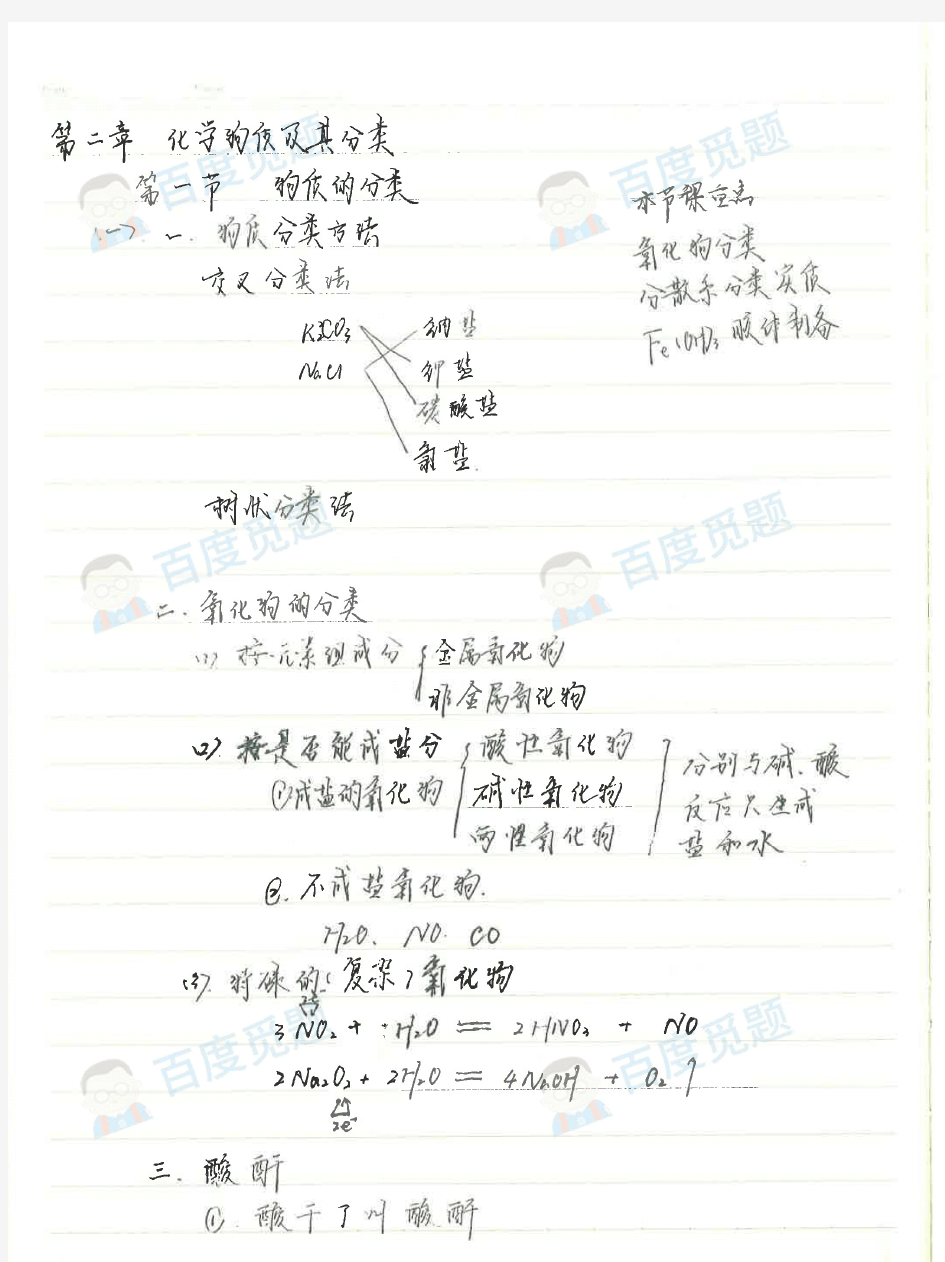 第二章 化学物质及其分类
第一节 物质的分类
(一) 一. 物质分类方法
交叉分类法
K2CO3 钠盐
NaCl 钾盐
碳酸盐
氯盐.
本节课重点
氧化物分类
分散系分类实质
Fe(OH)3胶体制备
树状分类法
二. 氧化物的分类
(1) 按元素组成分 { 金属氧化物
非金属氧化物
(2) 按是否能成盐分
①成盐的氧化物 { 酸性氧化物
碱性氧化物
两性氧化物
分别与碱、酸
反应只生成
盐和水
②. 不成盐氧化物.
H2O. NO. CO
(3). 特殊的(复杂)氧化物
3NO2 + H2O == 2HNO3 + NO
2Na2O2 + 2H2O == 4NaOH + O2↑
2e-
三. 酸酐
①. 酸干了叫酸酐
百度觅题
百度觅题
百度觅题
百度觅题
百度觅题
百度觅题